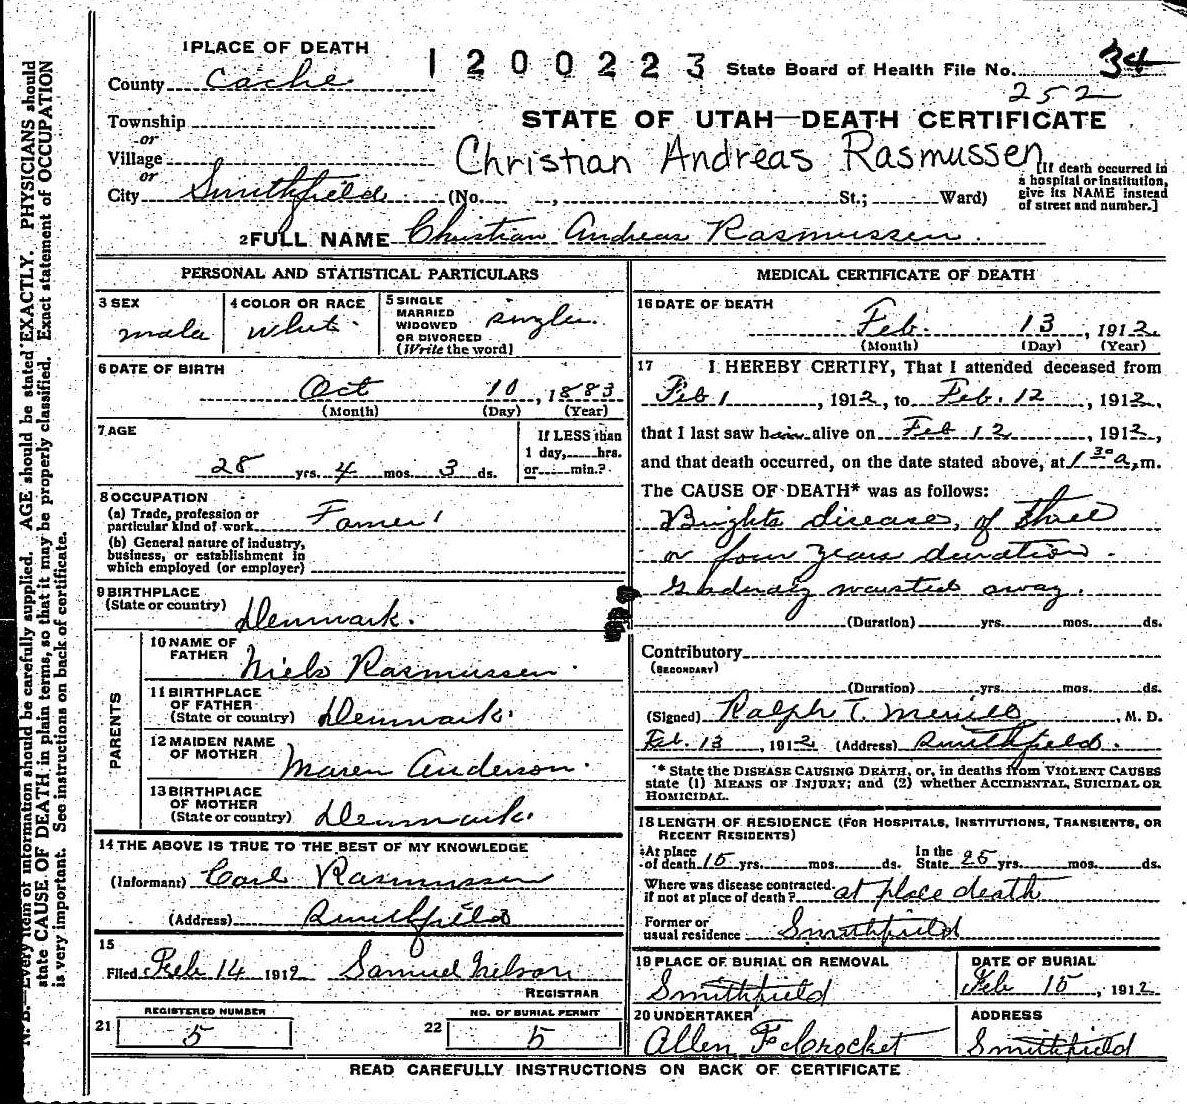 1 PLACE OF DEATH
County Cache
1200223
State Board of Health File No. 34
252
Township
or
Village
or
City Smithfield (No. , St.; Ward)
STATE OF UTAH—DEATH CERTIFICATE
Christian Andreas Rasmussen
[If death occurred in
a hospital or institution,
give its NAME instead
of street and number.]
2 FULL NAME Christian Andreas Rasmussen
PERSONAL AND STATISTICAL PARTICULARS
3 SEX
male
4 COLOR OR RACE
White
5 SINGLE
MARRIED
WIDOWED
OR DIVORCED
(Write the word)
single
6 DATE OF BIRTH
Oct 10, 1883
(Month) (Day) (Year)
7 AGE
28 yrs. 4 mos. 3 ds.
If LESS than
1 day, hrs.
or min.?
8 OCCUPATION
(a) Trade, profession or
particular kind of work Famer
(b) General nature of industry,
business, or establishment in
which employed (or employer)
9 BIRTHPLACE
(State or country) Denmark.
PARENTS
10 NAME OF
FATHER Niels Rasmussen
11 BIRTHPLACE
OF FATHER
(State or country) Denmark.
12 MAIDEN NAME
OF MOTHER Maren Anderson.
13 BIRTHPLACE
OF MOTHER
(State or country) Denmark.
14 THE ABOVE IS TRUE TO THE BEST OF MY KNOWLEDGE
(Informant) Carl Rasmussen
(Address) Smithfield
15
Filed Feb 14 1912 Samuel Nelson
REGISTRAR
21 REGISTERED NUMBER
5
22 NO. OF BURIAL PERMIT
5
MEDICAL CERTIFICATE OF DEATH
16 DATE OF DEATH
Feb. 13, 1912.
(Month) (Day) (Year)
17 I HEREBY CERTIFY, That I attended deceased from
Feb 1, 1912, to Feb. 12, 1912,
that I last saw him alive on Feb 12, 1912,
and that death occurred, on the date stated above, at 1 30 a, m.
The CAUSE OF DEATH* was as follows:
Brights disease, of three
or four years duration.
wasted away.
(Duration) yrs. mos. ds.
Contributory
(SECONDARY)
(Duration) yrs. mos. ds.
(Signed) Ralph T. Merrill, M. D.
Feb. 13, 1912 (Address) Smithfield.
* State the DISEASE CAUSING DEATH, or, in deaths from VIOLENT CAUSES
state (1) MEANS OF INJURY; and (2) whether ACCIDENTAL, SUICIDAL OR
HOMICIDAL.
18 LENGTH OF RESIDENCE (FOR HOSPITALS, INSTITUTIONS, TRANSIENTS, OR
RECENT RESIDENTS)
At place
of death 15 yrs. mos. ds.
In the
State 25 yrs. mos. ds.
Where was disease contracted
if not at place of death? at place death
Former or
usual residence Smithfield
19 PLACE OF BURIAL OR REMOVAL
Smithfield
DATE OF BURIAL
Feb 15, 1912
20 UNDERTAKER
Allen
ADDRESS
Smithfield
READ CAREFULLY INSTRUCTIONS ON BACK OF CERTIFICATE
N. B.—Every item of information should be carefully supplied. AGE should be stated EXACTLY. PHYSICIANS should
state CAUSE OF DEATH in plain terms, so that it may be properly classified. Exact statement of OCCUPATION
is very important. See instructions on back of certificate.